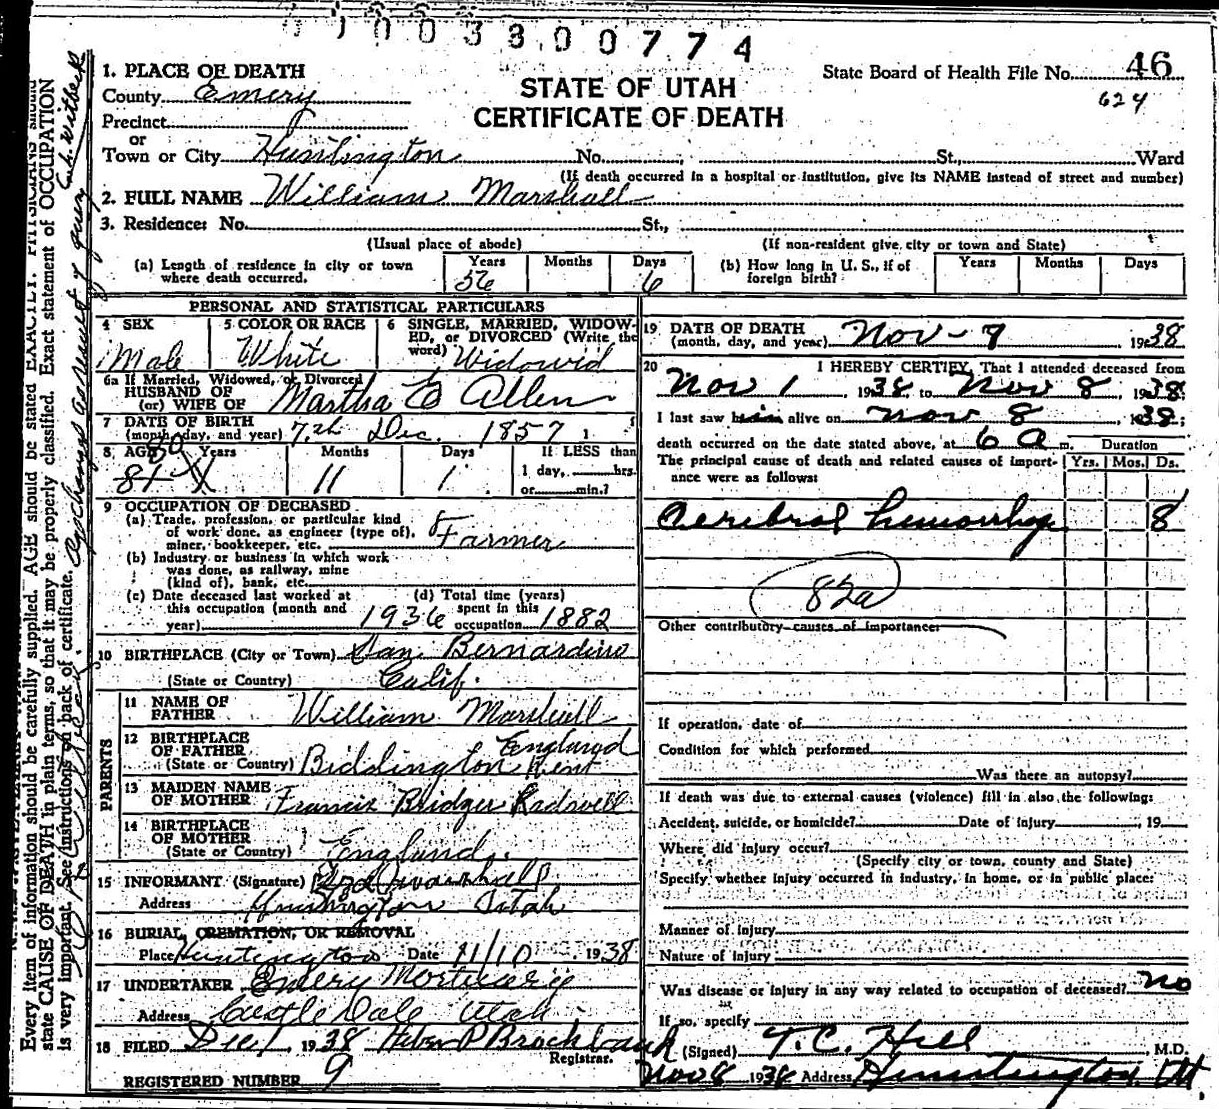 0 1 0 0 3 3 0 0 7 7 4
1. PLACE OF DEATH
County Emery
STATE OF UTAH
CERTIFICATE OF DEATH
State Board of Health File No. 46
624
Precinct
or
Town or City Huntington No. St., Ward
(If death occurred in a hospital or institution, give its NAME instead of street and number)
2. FULL NAME William Marshall
3. Residence: No. St.,
(Usual place of abode) (If non-resident give city or town and State)
(a) Length of residence in city or town where death occurred. Years 56 Months Days 6
(b) How long in U. S., if of foreign birth? Years Months Days
PERSONAL AND STATISTICAL PARTICULARS
4 SEX 5 COLOR OR RACE 6 SINGLE, MARRIED, WIDOWED, or DIVORCED (Write the word)
Male White Widowid
6a If Married, Widowed, or Divorced
HUSBAND OF
(or) WIFE OF Martha E Allen
7 DATE OF BIRTH
(month, day, and year) 7th Dec. 1857
8 AGE Years Months Days If LESS than
81 80 11 1 1 day, hrs.
or min.?
9 OCCUPATION OF DECEASED
(a) Trade, profession, or particular kind
of work done, as engineer (type of),
miner, bookkeeper, etc. Farmer
(b) Industry or business in which work
was done, as railway, mine
(kind of), bank, etc.
(c) Date deceased last worked at
this occupation (month and
year) 1936
(d) Total time (years)
spent in this
occupation 1882
10 BIRTHPLACE (City or Town) San Bernardino
(State or Country) Calif.
PARENTS
11 NAME OF
FATHER William Marshall
12 BIRTHPLACE
OF FATHER England
(State or Country) Biddington Kent
13 MAIDEN NAME
OF MOTHER Francis Bridger Radswell
14 BIRTHPLACE
OF MOTHER
(State or Country) England.
15 INFORMANT (Signature) Marshall
Address Huntington Utah
16 BURIAL, CREMATION, OR REMOVAL
Place Huntington Date 11/10 1938
17 UNDERTAKER Emery Mortuary
Address Castle Dale Utah
18 FILED Dec 1 1938 Heber P Brockbank
Registrar.
REGISTERED NUMBER 9
19 DATE OF DEATH
(month, day, and year) Nov - 9, 1938
20 I HEREBY CERTIFY, That I attended deceased from
Nov 1, 1938, to Nov 8, 1938;
I last saw him alive on Nov 8, 1938;
death occurred on the date stated above, at 6 a m. Duration
The principal cause of death and related causes of importance were as follows: Yrs. Mos. Ds.
Cerebral hemorrhage 8
82a
Other contributory causes of importance:
If operation, date of
Condition for which performed
Was there an autopsy?
If death was due to external causes (violence) fill in also the following:
Accident, suicide, or homicide? Date of injury, 19
Where did injury occur?
(Specify city or town, county and State)
Specify whether injury occurred in industry, in home, or in public place:
Manner of injury
Nature of injury
Was disease or injury in any way related to occupation of deceased? no
If so, specify
(Signed) T. C. Hill, M.D.
Nov 8 1938 Address Huntington, Ut.
Every item of information should be carefully supplied. AGE should be stated EXACTLY. PHYSICIANS should
state CAUSE OF DEATH in plain terms, so that it may be properly classified. Exact statement of OCCUPATION
is very important. See instructions on back of certificate. Age changed as result of query